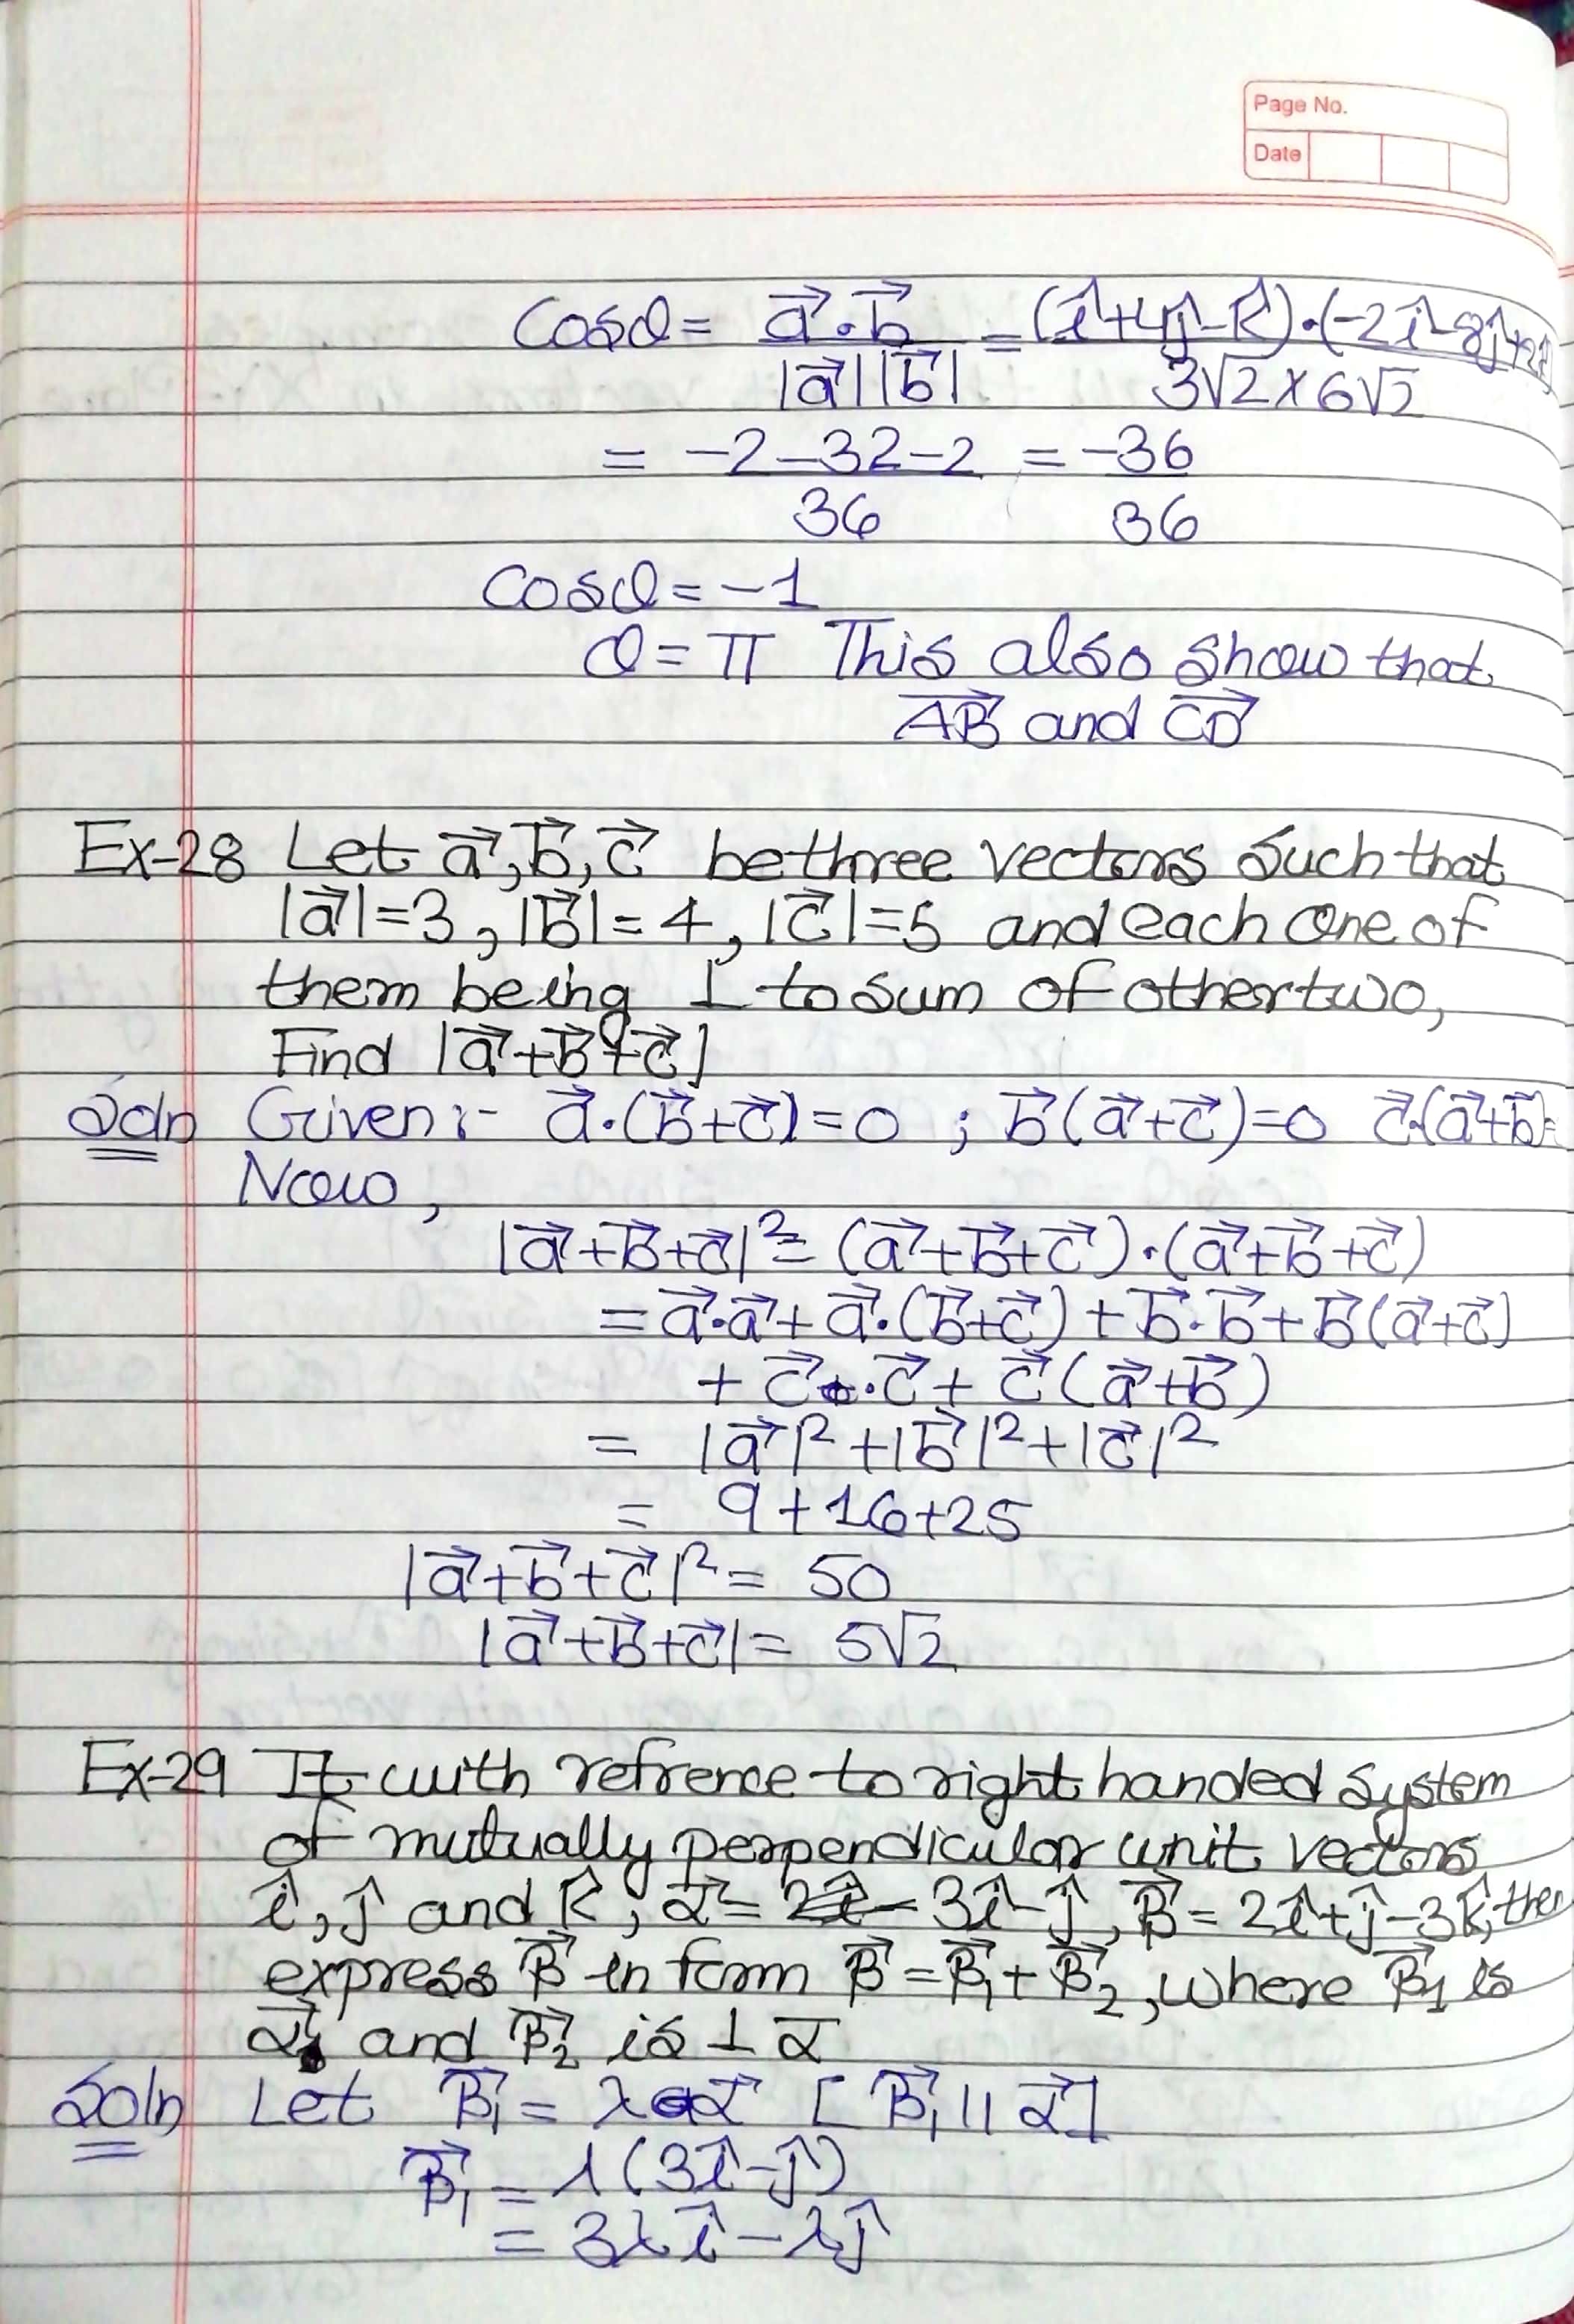 Page No.
Date
Cosθ = a⃗·b⃗ / |a⃗||b⃗| = (î+4ĵ-k̂)·(-2î-8ĵ+2k̂) / 3√2×6√2
= -2-32-2 / 36 = -36 / 36
Cosθ = -1
θ = π This also show that
A⃗B⃗ and C⃗D⃗
Ex-28 Let a⃗, b⃗, c⃗ be three vectors such that
|a⃗|=3, |b⃗|=4, |c⃗|=5 and each one of
them being ⊥ to sum of other two,
Find |a⃗+b⃗+c⃗|
Soln Given:- a⃗·(b⃗+c⃗)=0 ; b⃗(a⃗+c⃗)=0 c⃗·(a⃗+b⃗)=
Now,
|a⃗+b⃗+c⃗|² = (a⃗+b⃗+c⃗)·(a⃗+b⃗+c⃗)
= a⃗·a⃗+a⃗·(b⃗+c⃗)+b⃗·b⃗+b⃗(a⃗+c⃗)
+ c⃗·c⃗+c⃗(a⃗+b⃗)
= |a⃗|²+|b⃗|²+|c⃗|²
= 9+16+25
|a⃗+b⃗+c⃗|² = 50
|a⃗+b⃗+c⃗| = 5√2
Ex-29 If with refrence to right handed system
of mutually perpendicular unit vectors
î, ĵ and k̂, α⃗ = 3î-ĵ, β⃗ = 2î+ĵ-3k̂, then
express β⃗ in form β⃗ = β⃗₁+β⃗₂, where β⃗₁ is
α⃗ and β⃗₂ is ⊥ α
Soln Let β⃗₁ = λα⃗ [β⃗₁ || α⃗]
β⃗₁ = λ(3î-ĵ)
= 3λî-λĵ